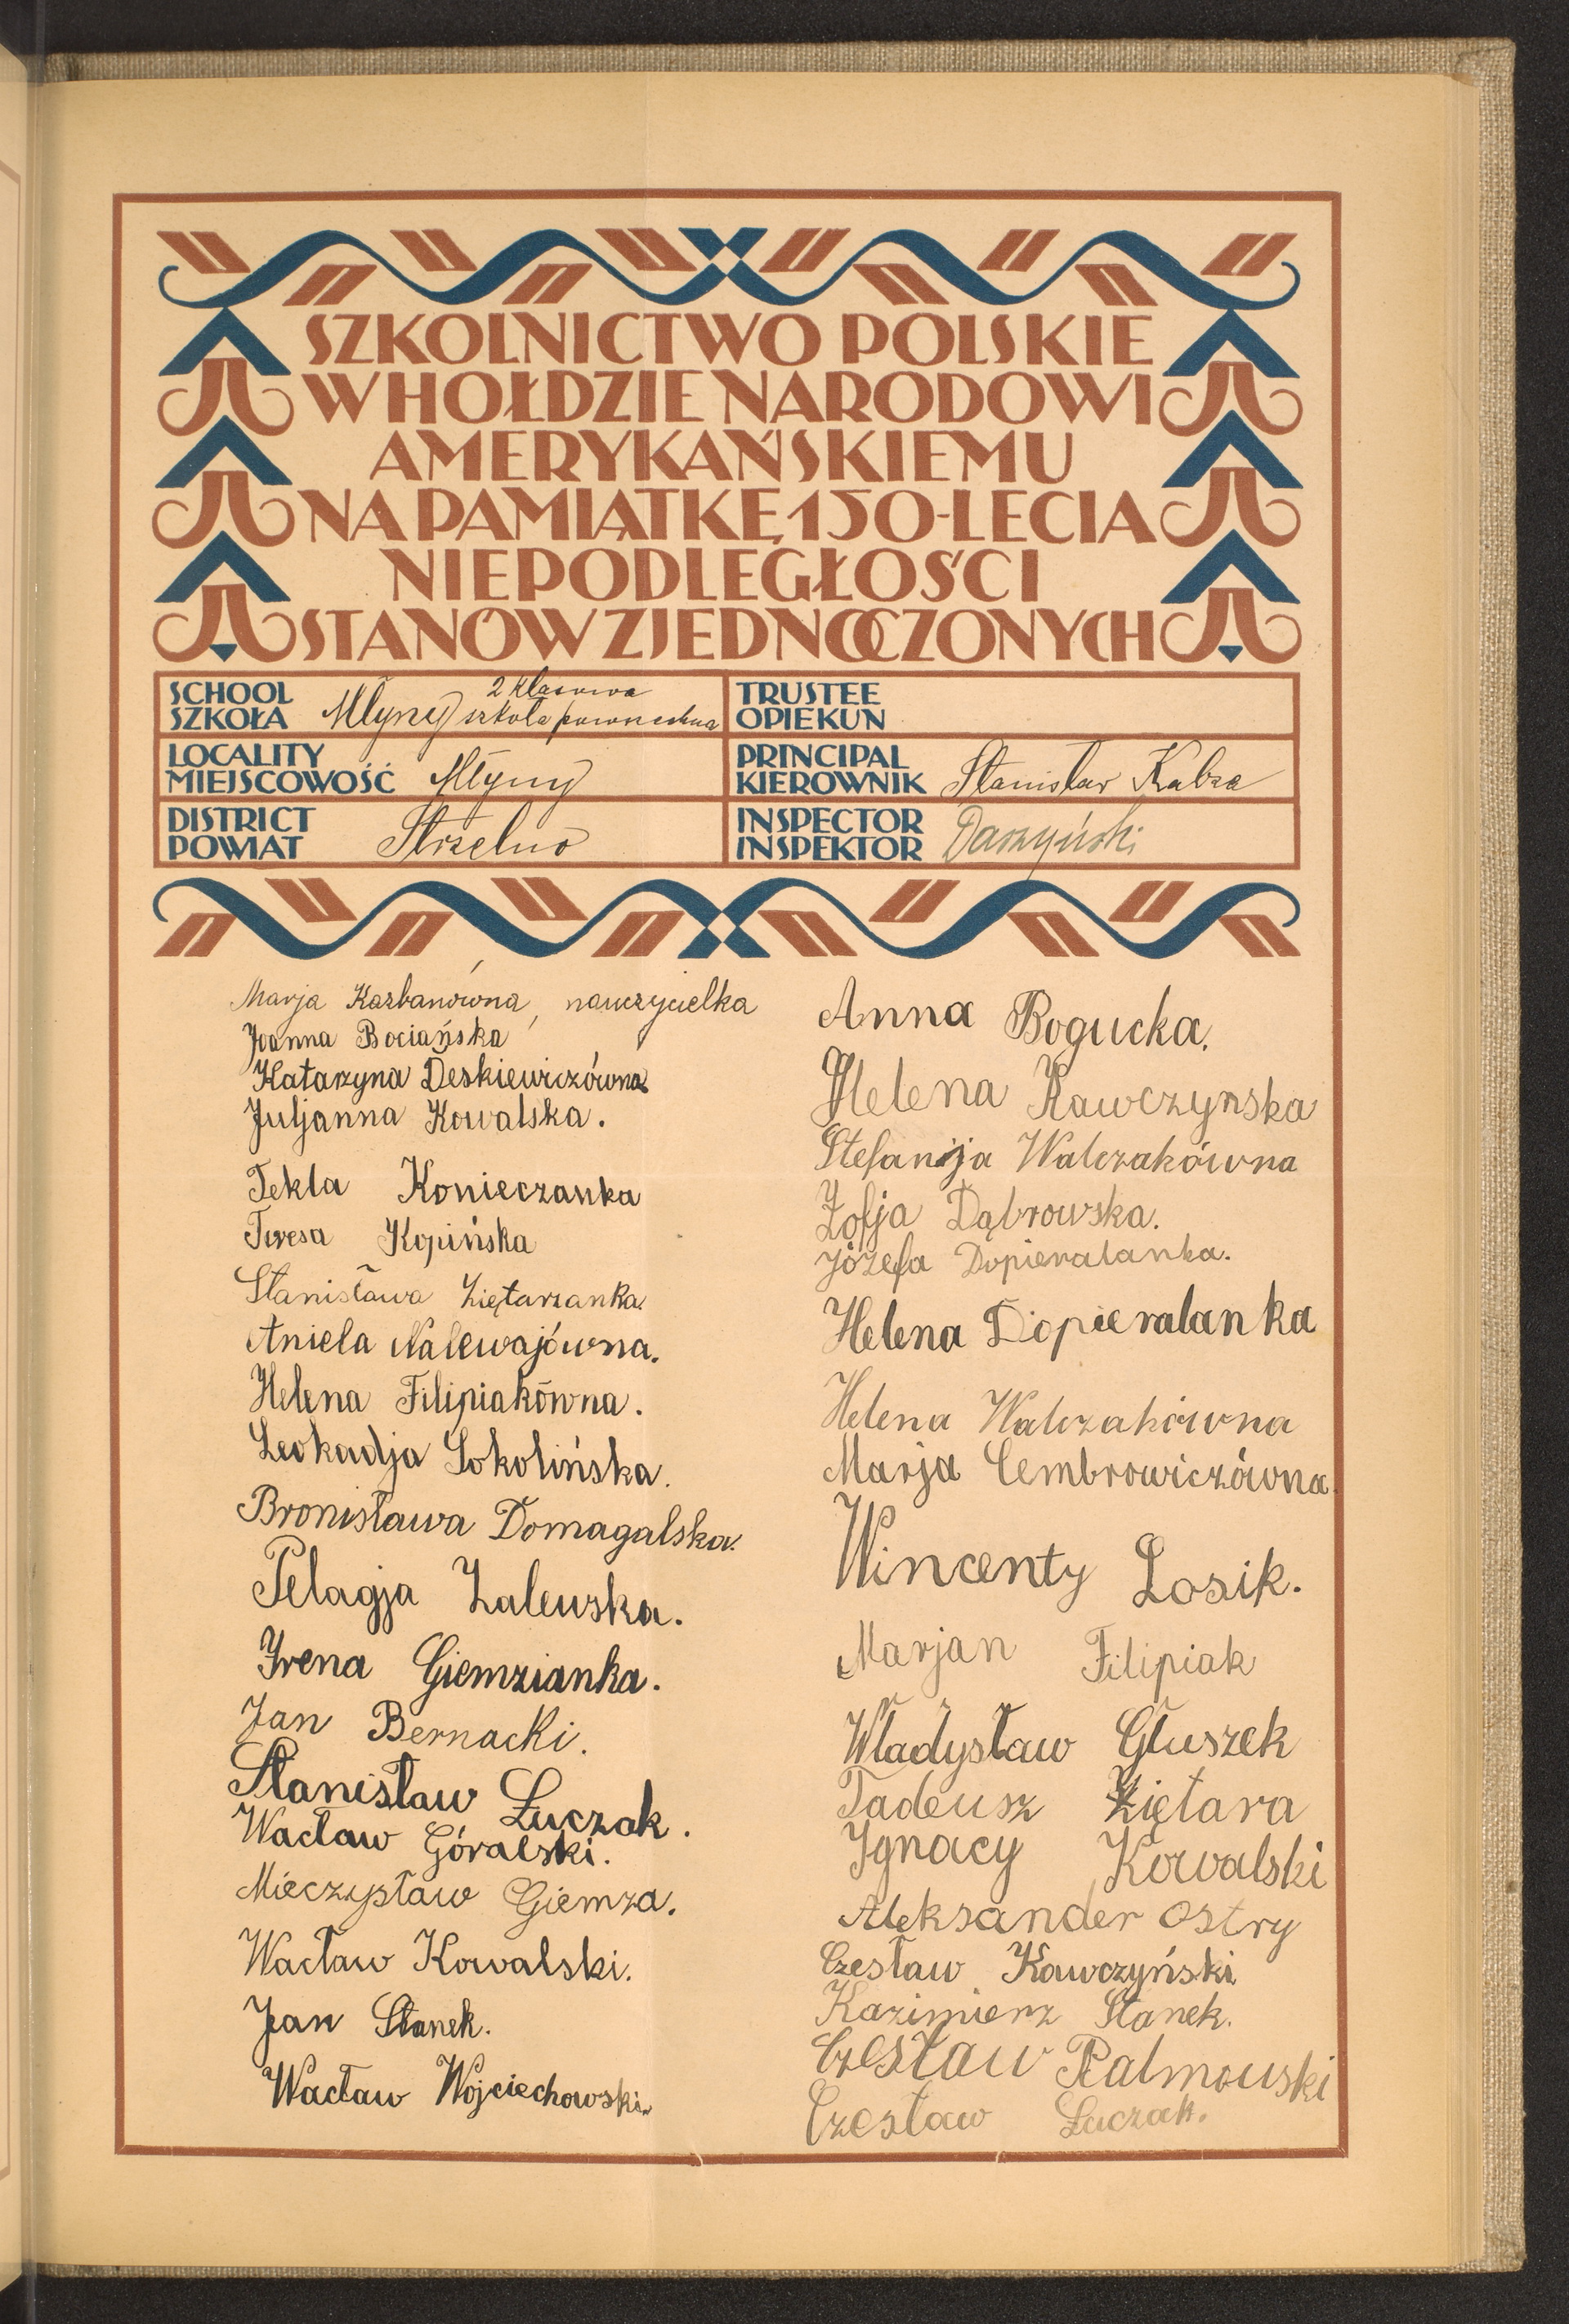 SZKOLNICTWO POLSKIE
W HOŁDZIE NARODOWI
AMERYKAŃSKIEMU
NA PAMIĄTKĘ 150-LECIA
NIEPODLEGŁOŚCI
STANÓW ZJEDNOCZONYCH
SCHOOL
SZKOŁA
Młyny 2 klasowa szkoła powszechna
TRUSTEE
OPIEKUN
LOCALITY
MIEJSCOWOŚĆ
Młyny
PRINCIPAL
KIEROWNIK
Stanisław Kabza
DISTRICT
POWIAT
Strzelno
INSPECTOR
INSPEKTOR
Daszyński
Marja Kazbanówna, nauczycielka
Joanna Bociańska
Katarzyna Deskiewiczówna
Juljanna Kowalska.
Tekla Konieczanka
Teresa Kopińska
Stanisława Ziętarzanka.
Aniela Nalewajówna.
Helena Filipiakówna.
Leokadja Sokolińska.
Bronisława Domagalska.
Pelagja Zalewska.
Irena Giemzianka.
Jan Bernacki.
Stanisław Łuczak.
Wacław Góralski.
Mieczysław Giemza.
Wacław Kowalski.
Jan Stanek.
Wacław Wojciechowski.
Anna Bogucka.
Helena Kawczynska
Stefanja Walczakówna
Zofja Dąbrowska.
Józefa Dopieralanka.
Helena Dopieralanka
Helena Walczakówna
Marja Cembrowiczówna.
Wincenty Losik.
Marjan Filipiak
Władysław Głuszek
Tadeusz Ziętara
Ignacy Kowalski
Aleksander Ostry
Czesław Kawczyński
Kazimierz Stanek.
Czesław Palmowski
Czesław Łuczak.